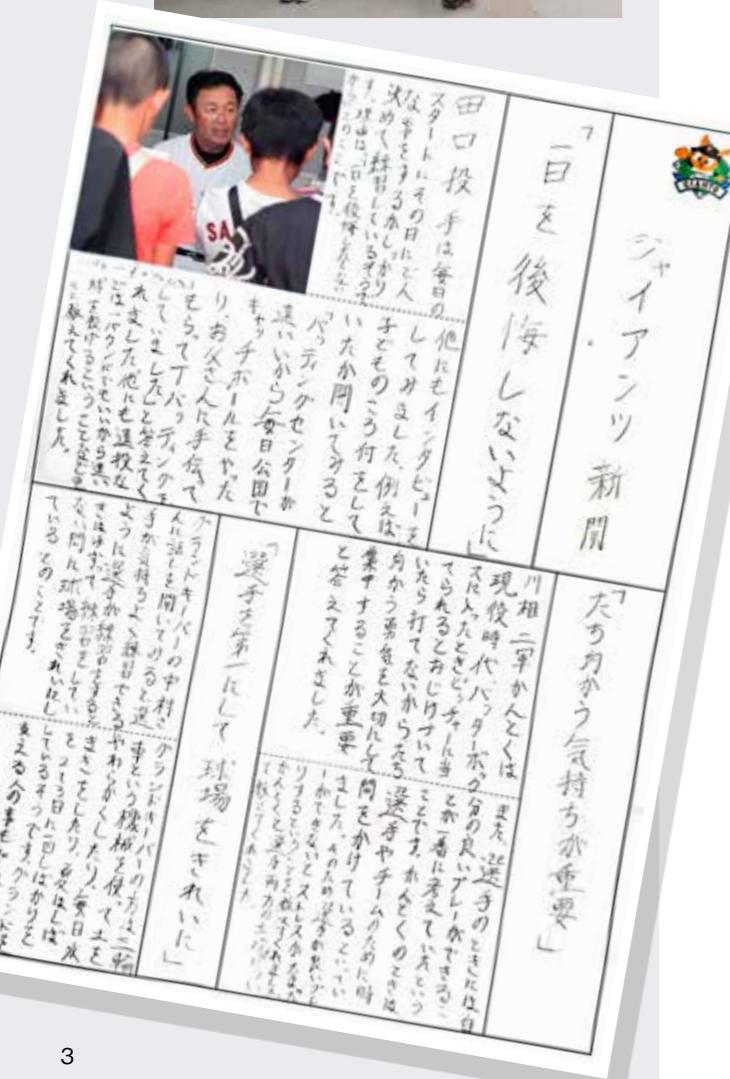 GIANTS
ジャイアンツ新聞
「一日を後悔しないように」
田口投手は毎日の
スタートにその日にどん
な事をするかしっかり
決めて練習しているそうで
す。理由は、一日を後悔したくない
からとのことです。
他にもインタビューを
してみました。例えば
子どものころ何をして
いたか聞いてみると
「バッティングセンターが
遠いから毎日公園で
キャッチボールをやった
り、お父さんに手伝って
もらってTバッティングを
していました」と答えてく
れました。他にも遠投な
どは一バウンドでもいいから遠い
球を投げるということなど
教えてくれました。
「たち向かう気持ちが重要」
川相二軍かんとくは
現役時代、バッターボック
スに入ったときピッチャーに当
てられるとおじけづいて
いたら打てないからたち
向かう勇気を大切にして
集中することが重要
と答えてくれました。
また、選手のときには自
分の良いプレーができるこ
とが一番に考えていたという
ことです。かんとくのときは
選手やチームのために時
間をかけているといってい
ました。そのため選手が良いプレ
ーができないとストレスが
りするということも教えてくれました
「選手を第一にして球場をきれいに」
グランドキーパーの中村さ
んに話しを聞いてみると選
手が気持ちよく練習できる
ように選手が練習するとき
はゆずって、練習をしてい
ない間に球場をきれいにし
ているとのことです。
グランドキーパーの方は三輪
車という機械を使って土を
やわらかくしたり、毎日水
まきをしたり、夏はしば
を2~3日に一回しばかりを
しているそうです。グラン
支える人の事も
SA
3